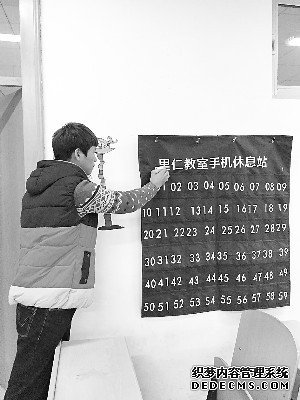 里仁教室手机休息站
1 02 03 04 05 06 07 08 09
10 11 12 13 14 15 16 17 18 19
20 21 22 23 24 25 26 27 28 29
30 31 32 33 34 35 36 37 38 39
40 41 42 43 44 45 46 47 48 49
50 51 52 53 54 55 56 57 58 59
织梦内容管理系统
DEDECMS.COM